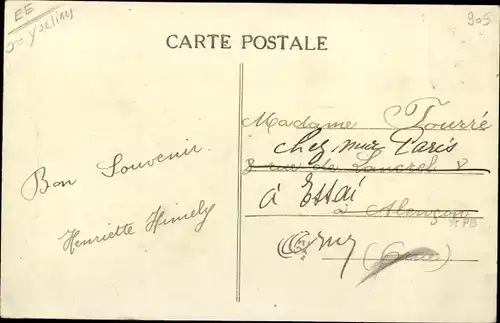 EE
905
CARTE POSTALE
Bon Souvenir.
Henriette Himely
Madame Tourré
chez mur Paris
8 rue de Lancrel
à Essai
à Alençon
Orny (Orne)